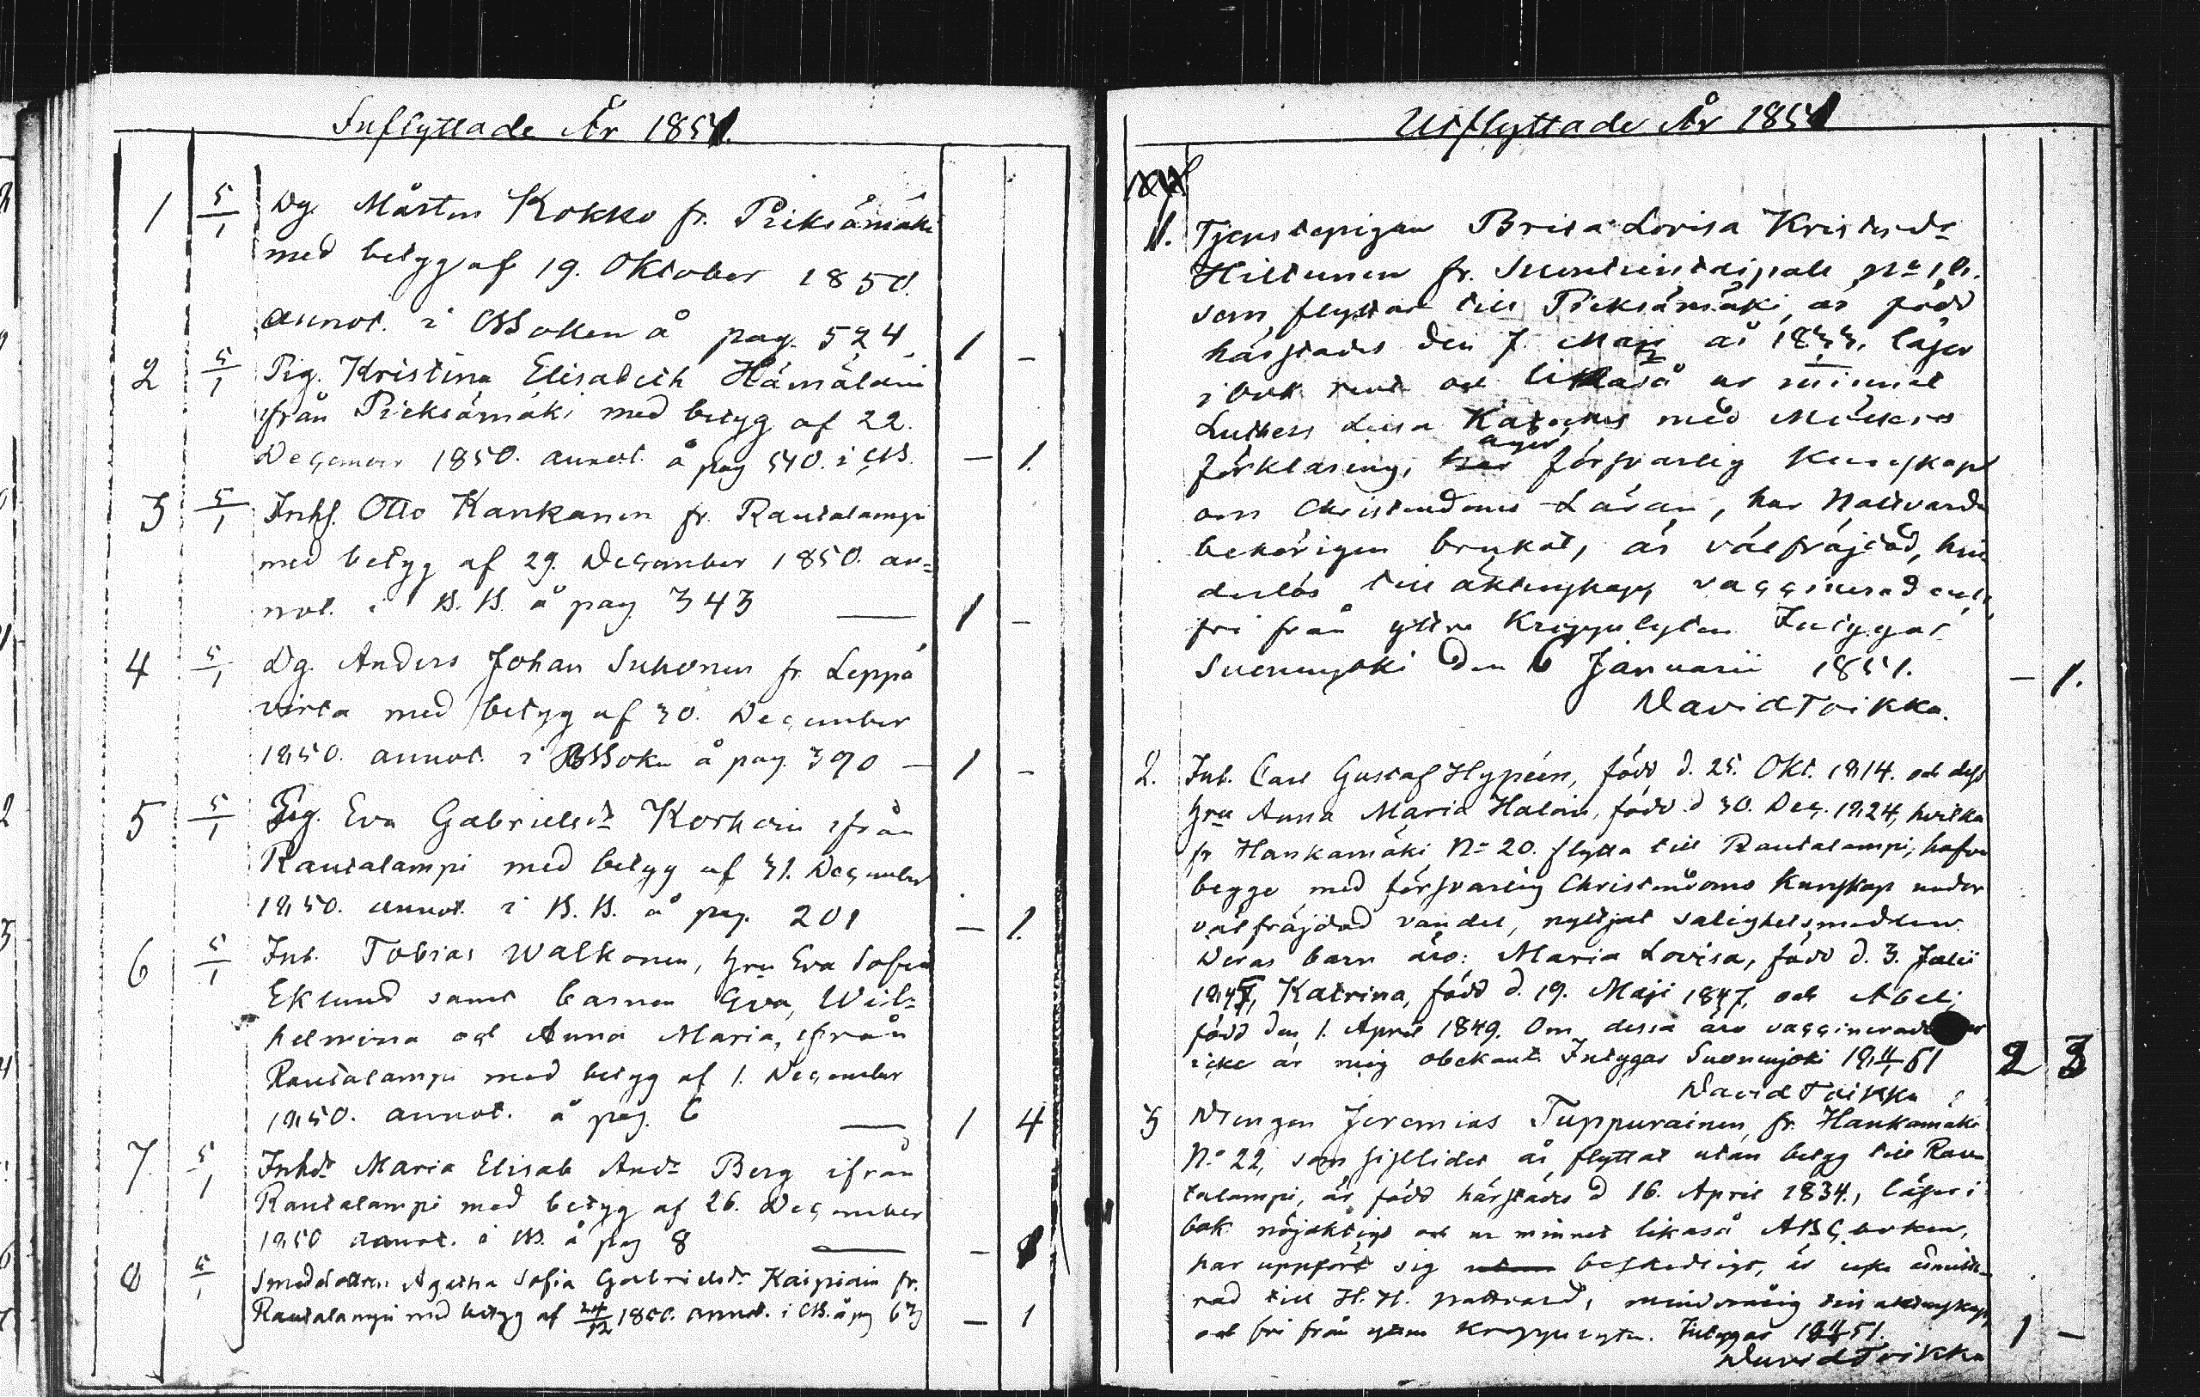 Inflyttade År 1851.
1 5/1 Dg. Mårten Kokko fr. Pieksämäki
med betyg af 19. Oktober 1850.
annot. i KBoken å pag. 524 1 –
2 5/1 Pig. Kristina Elisabeth Hämäläin
ifrån Pieksämäki med betyg af 22.
December 1850. annot. å pag 540. i KB. – 1.
3 5/1 Inhs. Otto Kankanen fr. Rautalampi
med betyg af 29. December 1850. an=
not. i K.B. å pag. 343 — 1 –
4 5/1 Dg. Anders Johan Suhonen fr. Leppä
virta med betyg af 30. December
1850. annot. i KBoken å pag. 390 – 1 –
5 5/1 Pig. Eva Gabrielsdr Korhoin ifrån
Rautalampi med betyg af 31. December
1850. annot. i K.B. å pag. 201 – 1.
6 5/1 Inh. Tobias Walkonen, hru Eva Sofia
Eklund samt barnen Eva, Wil=
helmina och Anna Maria, ifrån
Rautalampi med betyg af 1. December
1850. annot. å pag. 6 — 1 4
7 5/1 Inhdr Maria Elisab Andr Berg ifrån
Rautalampi med betyg af 26. December
1850 annot. i KB. å pag 8 — – 1
8 5/1 Smeddottren Agatha Sofia Gabrielsdr Kaipiain fr.
Rautalampi med betyg af 24/12 1850. annot. i KB. å pag 63 – 1
Utflyttade År 1851
1. Tjenstepigan Brita Lovisa Kristersdr
Hiltunen fr. No 10.
som flyttar till Pieksämäki, är född
härstädes den 7. Maji år 1833, läser
i bok rent och likaså ur minnet
Luthers Lilla Kateches med Möllers
förklaring, har äger försvarlig Kunskap
om Christendoms Läran, har Nattvarden
behörigen brukat, är välfräjdad, hin
derlös till äktenskap, vaccinerad och
fri från yttre Kroppslyten Intygas
Suonenjoki den 6 Januarii 1851. – 1.
David Toikka.
2. Inh. Carl Gustaf Hypéen, född d. 25. Okt. 1814. och dess
hru Anna Maria Haloin, född d 30. Dec. 1824, hvilka
fr Hankamäki No 20. flytta till Rautalampi, hafva
begge med försvarlig Christendoms Kunskap under
välfräjdad vandel, nyttjat salighetsmedlen.
Deras barn äro: Maria Lovisa, född d. 3. Julii
1845, Katrina, född d. 19. Maji 1847, och Abel,
född den 1. April 1849. Om dessa äro vaccinerade eller
icke är mig obekant. Intygas Suonenjoki 18 51 2 3
David Toikka
3 Drengen Jeremias Tuppurainen, fr. Hankamäki
No 22, som är flyttat utan betyg till Rau
talampi, är född härstädes d 16. April 1834, läser i
bok nöjaktigt och ur minnet likaså ABC boken,
har uppfört sig beskedligt, är icke admitte
rad till H. H. Nattvard, minderårig till äktenskap,
och fri från yttre kroppslyten. Intygas 18 51. 1 –
David Toikka